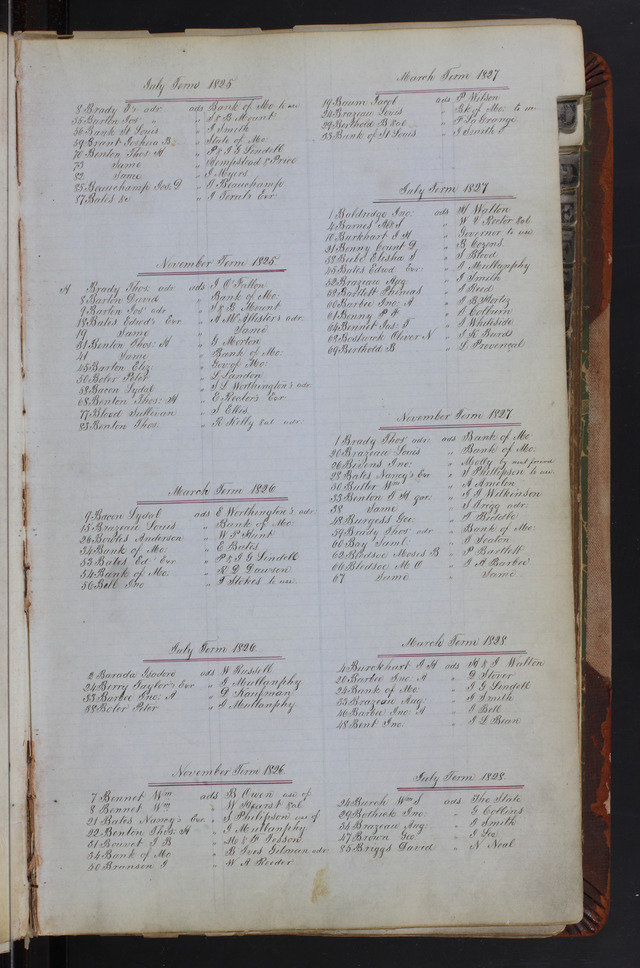 July Term 1825
8 Brady T's adr. ads Bank of Mo. to use
35 Barton Jos. " " J & B Mount
56 Bank St Louis " J Smith
59 Brant Joshua B. " State of Mo
70 Benton Thos. H " P & J G Lindell
73 Same " Hempstead & Price
82 Same " J Myers
85 Beauchamp Jos. D " Beauchamp
87 Bates &c " Exr.
November Term 1825
Brady Thos. adr. ads J O Fallon
8 Barton David " Bank of Mo.
9 Barton Jos. adr. " J & B Mount
18 Bates Edwd's Exr. " A McAllister's adr.
19 Same " Same
31 Benton Thos. H " G Morton
41 Same " Bank of Mo.
45 Barton Elez. " Gov. of Mo.
50 Boler Peter " L Landon
58 Bacon Lydal " J L Worthington's adr.
68 Benton Thos. H " E Rector's Exr.
77 Blood Sullivan " S Ellis
83 Benton Thos. " R Kelly &al adr.
March Term 1826
9 Bacon Lydal ads E Worthington's adr.
15 Brazeau Louis " Bank of Mo.
26 Boules Anderson " W P Hunt
34 Bank of Mo. " E Bates
53 Bates Ed. Exr " P & J G Lindell
54 Bank of Mo. " R D Dawson
56 Bell Jno. " J Stokes to use
July Term 1826
2 Barada Isadore ads W Russell
24 Berry Taylor's Exr " J Mullanphy
33 Barbee Jno: A " D Kaufman
38 Boler Peter " J Mullanphy
November Term 1826
7 Bennet Wm ads B Owen use of
8 Bennet Wm " W Hearst &al
21 Bates Nancy's Exr. " S Philipson use of
22 Benton Thos. H " J Mullanphy
31 Bouvet J B " Mc & F Tesson
34 Bank of Mo " B Ives Gilman adr.
50 Branson J " W A Reeder
March Term 1827
19 Baum Jacob ads P Wilson
24 Brazeau Louis " Bk of Mo. to use
29 Berthold B &al " F La Grange
33 Bank of St Louis " J Smith
July Term 1827
1 Baldridge Jno. ads H Walton
4 Barnes " W V Rector &al
10 Burkhart J H " Governor to use
21 Benny Count D. " B Cozens
38 Beebe Elisha S " S Blood
45 Bates Edwd Exr: " J Mullanphy
52 Brazeau Aug. " J Smith
59 Bartlett Phineas " J Reed
60 Barbee Jno: A " J B Hortiz
61 Benny P H " E Colburn
64 Bennet Jas: T " J Whiteside
69 Bostwick Oliver N " J K Burds
69 Berthold B " L Provencal
November Term 1827
1 Brady Thos. adr. ads Bank of Mo
20 Brazeau Louis " Bank of Mo.
26 Bivens Jno: " Molly by next friend
28 Bates Nancy's Exr " S Phillipson to use
30 Butler Wm " A Amelon
33 Benton T H gar: " J J Wilkinson
38 Same " J Trigg adr.
48 Burgess Geo: " T Biddle
59 Brady Thos adr " Bank of Mo.
60 Bay Saml. " J Seaton
62 Bledsoe Moses B " P Bartlett
66 Bledsoe M. O " J A Barbee
67 Same " Same
March Term 1828
4 Burckhart J H ads H & J Walton
20 Barbee Jno: A " D Stover
24 Bank of Mo. " J G Lindell
33 Brazeau Aug: " J Smith
46 Barbee Jno: A " E Bell
48 Bent Jno. " J L Bean
July Term 1828.
24 Burch Wm J ads The State
29 Bothick Jno: " G Collins
34 Brazeau Aug: " J Smith
47 Brown Geo: " J Lee
85 Briggs David " N Neal